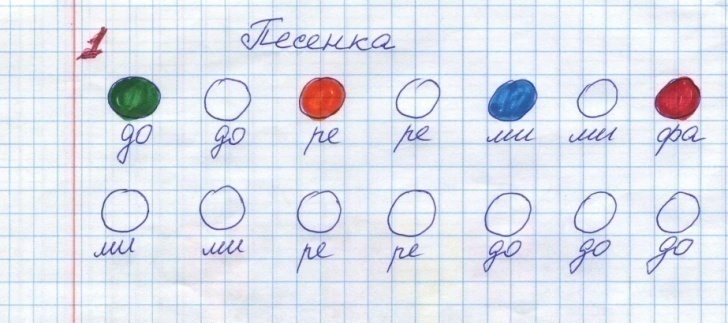 1 Песенка
до до ре ре ми ми фа
ми ми ре ре до до до